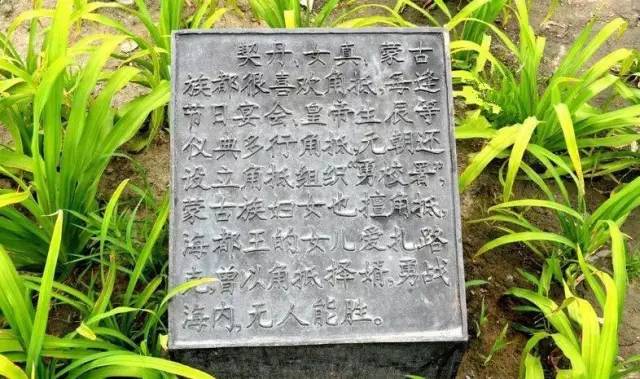 契丹、女真、蒙古
族都很喜欢角抵,每逢
节日宴会,皇帝生辰等
仪典多行角抵,元朝还
设立角抵组织“勇校署”,
蒙古族妇女也擅角抵,
海都王的女儿爱扎路
克曾以角抵择婿,勇战
海内,无人能胜。